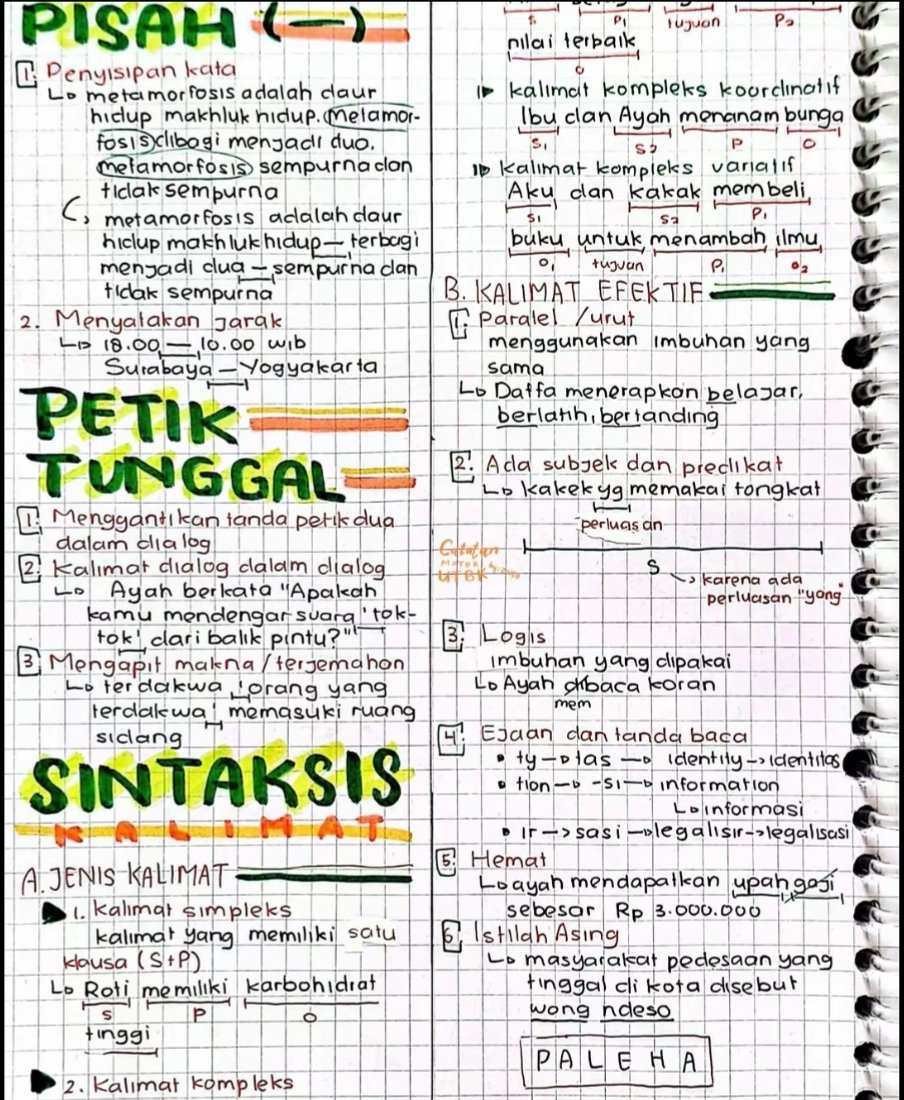 PISAH (—)
1. Penyisipan kata
↳ metamorfosis adalah daur
hidup makhluk hidup. Metamor-
fosis dibagi menjadi dua.
metamorfosis sempurna dan
tidak sempurna
↳ metamorfosis adalah daur
hidup makhluk hidup — terbagi
menjadi dua — sempurna dan
tidak sempurna
2. Menyatakan jarak
↳ 18.00 — 10.00 wib
Surabaya — Yogyakarta
PETIK
TUNGGAL
1. Menggantikan tanda petik dua
dalam dialog
2. Kalimat dialog dalam dialog
↳ Ayah berkata "Apakah
kamu mendengar suara 'tok-
tok' dari balik pintu?"
3. Mengapit makna/terjemahan
↳ terdakwa 'orang yang
terdakwa' memasuki ruang
sidang
SINTAKSIS
KALIMAT
A. JENIS KALIMAT
1. kalimat simpleks
kalimat yang memiliki satu
klausa (S+P)
↳ Roti memiliki karbohidrat
S P O
tinggi
2. Kalimat kompleks
S P1 tujuan P2
nilai terbaik
O
kalimat kompleks koordinatif
Ibu dan Ayah menanam bunga
S1 S2 P O
Kalimat kompleks variatif
Aku dan kakak membeli
S1 S2 P1
buku untuk menambah ilmu
O1 tujuan P1 O2
B. KALIMAT EFEKTIF
1. Paralel /urut
menggunakan imbuhan yang
sama
↳ Daffa menerapkan belajar,
berlatih, bertanding
2. Ada subjek dan predikat
↳ Kakek yg memakai tongkat
perluasan
S
→ karena ada
perluasan "yang"
Catatan
MATERI
UTBK
3. Logis
imbuhan yang dipakai
↳ Ayah dibaca koran
mem
4. Ejaan dan tanda baca
• ty → tas → identity → identitas
• tion → -si → information
↳ informasi
• ir → sasi → legalisir → legalisasi
5. Hemat
↳ ayah mendapatkan upah gaji
sebesar Rp 3.000.000
6. Istilah Asing
↳ masyarakat pedesaan yang
tinggal di kota disebut
wong ndeso
PALEHA